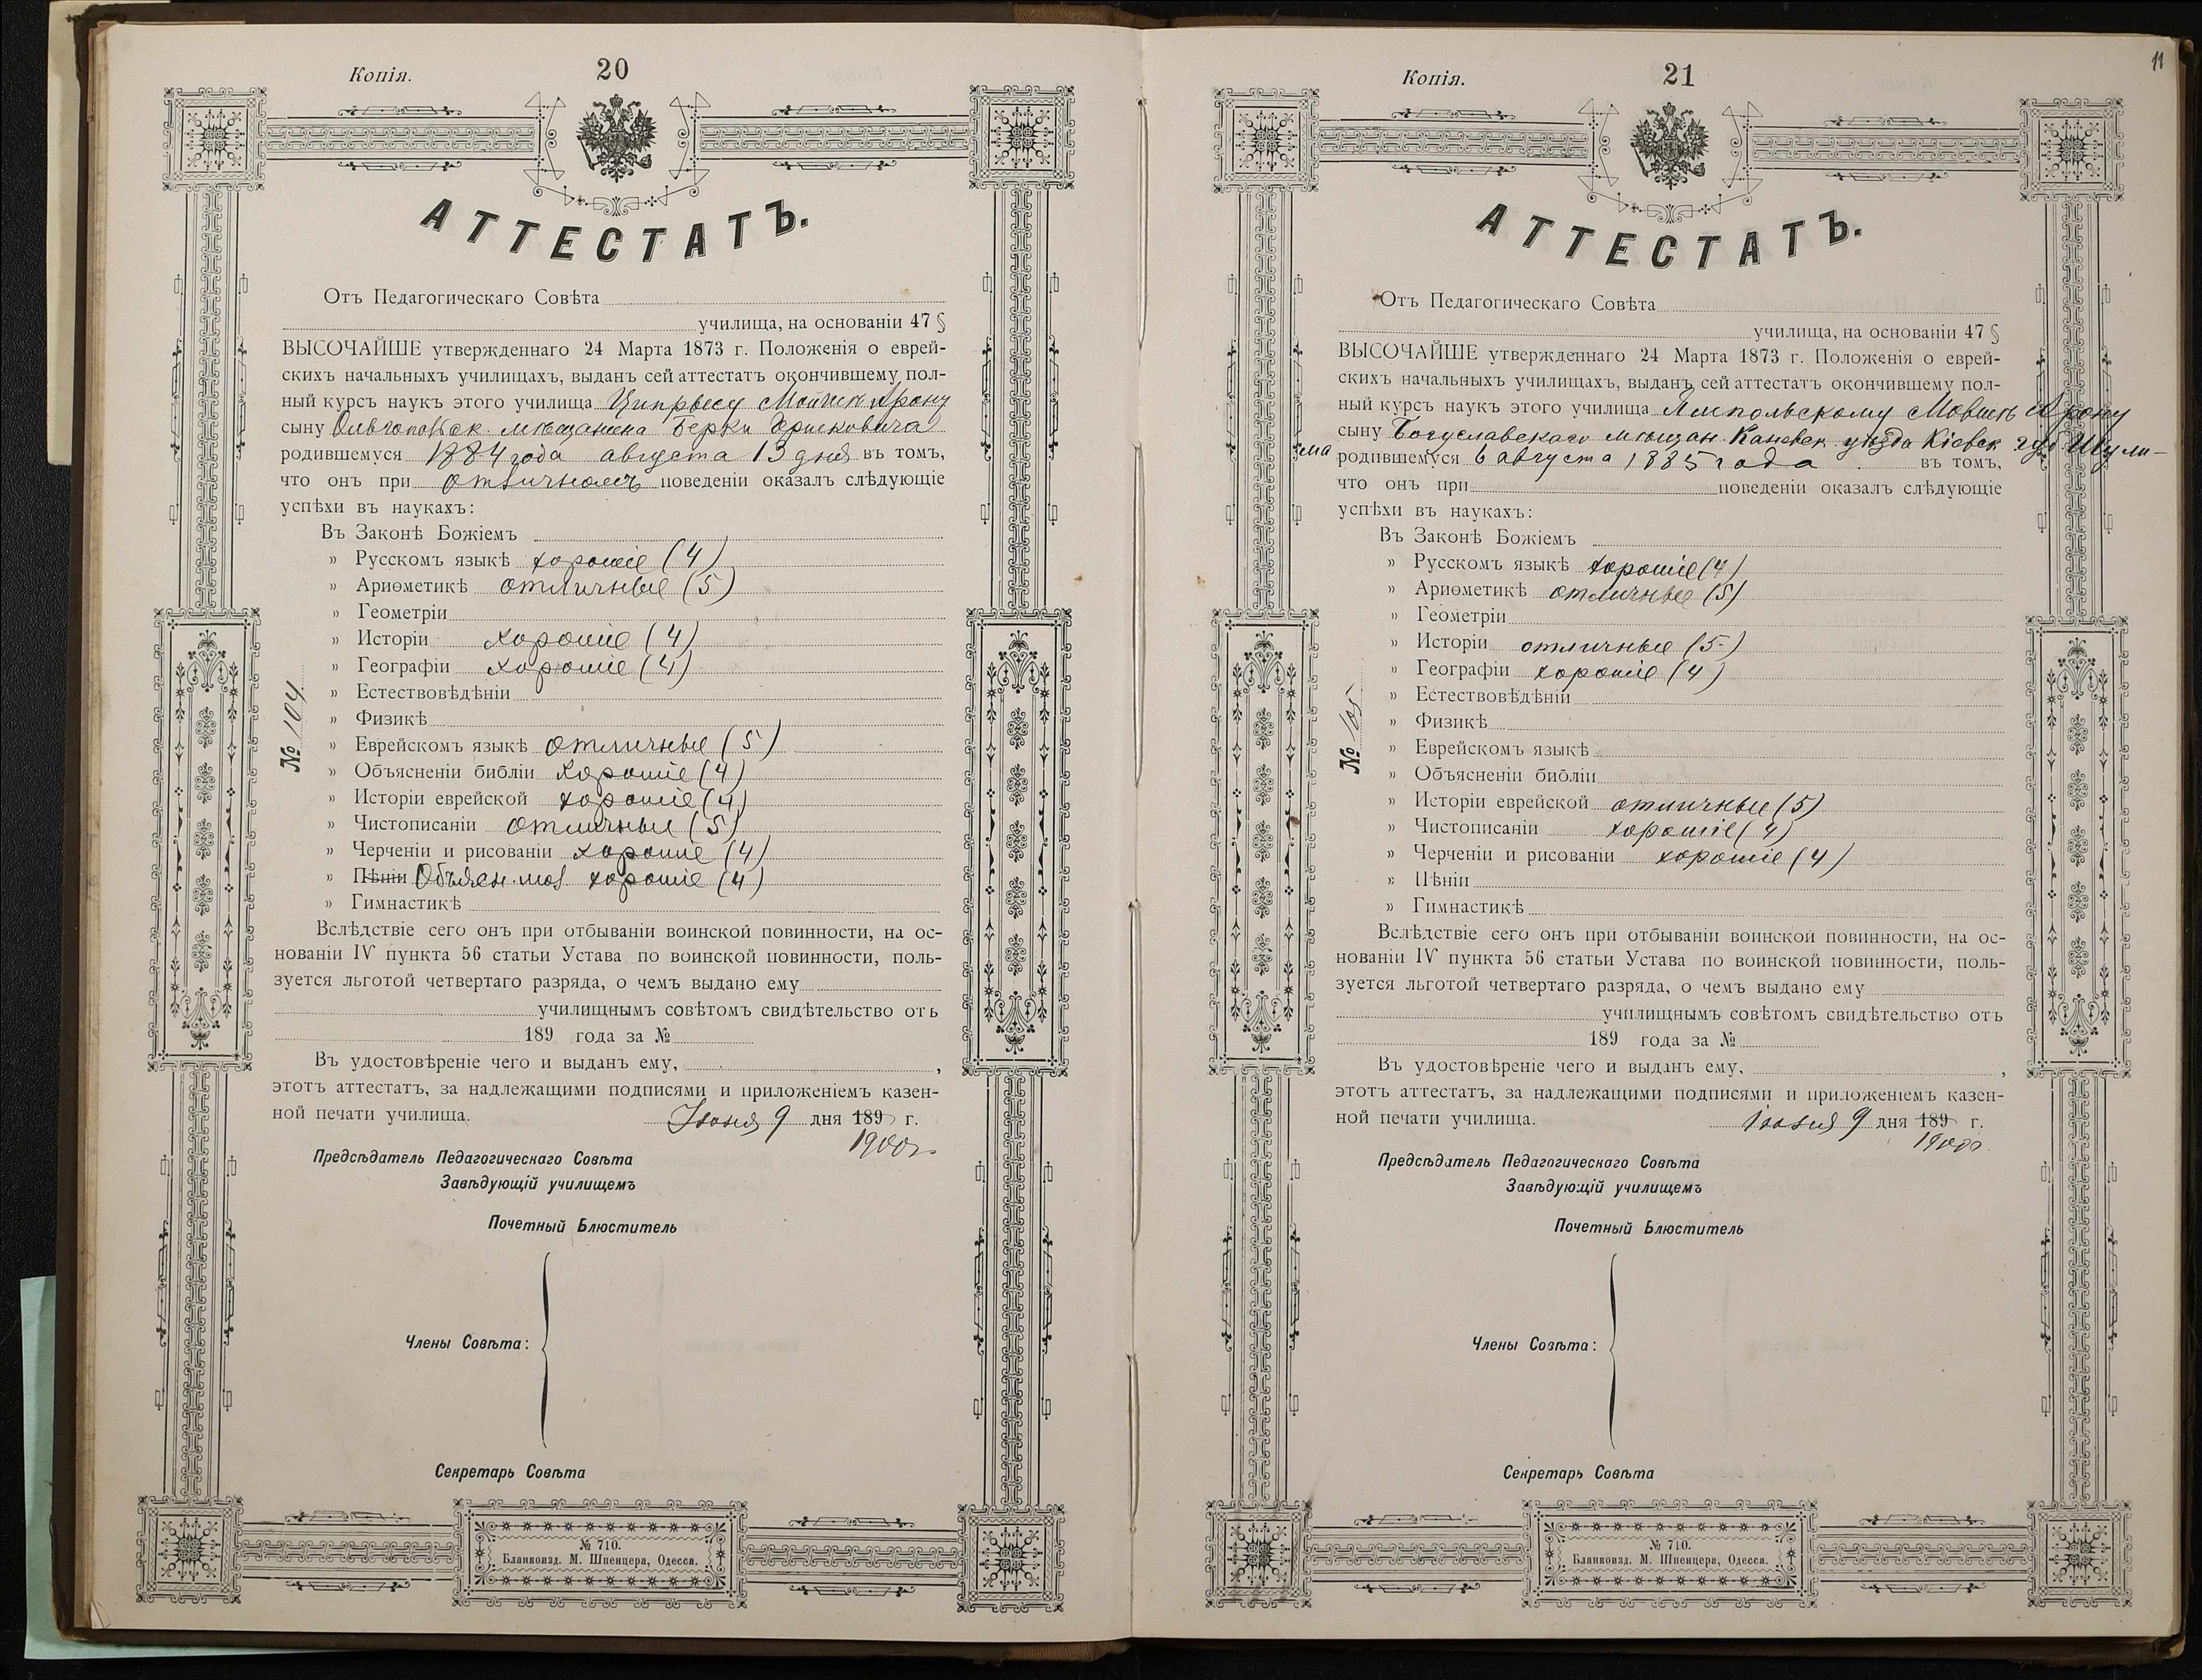 Копія.
20
АТТЕСТАТЪ.
Отъ Педагогическаго Совѣта
училища, на основаніи 47 §
ВЫСОЧАЙШЕ утвержденнаго 24 Марта 1873 г. Положенія о еврей-
скихъ начальныхъ училищахъ, выданъ сей аттестатъ окончившему пол-
ный курсъ наукъ этого училища Арону
сыну мѣщанина Берки
родившемуся 1884 года августа 13 дня въ томъ,
что онъ при отличномъ поведеніи оказалъ слѣдующіе
успѣхи въ наукахъ:
Въ Законѣ Божіемъ
» Русскомъ языкѣ хорошіе (4)
» Ариѳметикѣ отличные (5)
» Геометріи
» Исторіи хорошіе (4)
» Географіи хорошіе (4)
» Естествовѣдѣніи
» Физикѣ
» Еврейскомъ языкѣ отличные (5)
» Объясненіи библіи хорошіе (4)
» Исторіи еврейской хорошіе (4)
» Чистописаніи отличные (5)
» Черченіи и рисованіи хорошіе (4)
» Пѣніи хорошіе (4)
» Гимнастикѣ
№ 104
Вслѣдствіе сего онъ при отбываніи воинской повинности, на ос-
нованіи IV пункта 56 статьи Устава по воинской повинности, поль-
зуется льготой четвертаго разряда, о чемъ выдано ему
училищнымъ совѣтомъ свидѣтельство отъ
189 года за №
Въ удостовѣреніе чего и выданъ ему, ,
этотъ аттестатъ, за надлежащими подписями и приложеніемъ казен-
ной печати училища. Іюня 9 дня 189 г.
1900 г.
Предсѣдатель Педагогическаго Совѣта
Завѣдующій училищемъ
Почетный Блюститель
Члены Совѣта:
Секретарь Совѣта
№ 710.
Бланкоизд. М. Шпенцера, Одесса.
11
Копія.
21
АТТЕСТАТЪ.
Отъ Педагогическаго Совѣта
училища, на основаніи 47 §
ВЫСОЧАЙШЕ утвержденнаго 24 Марта 1873 г. Положенія о еврей-
скихъ начальныхъ училищахъ, выданъ сей аттестатъ окончившему пол-
ный курсъ наукъ этого училища Мовшѣ Арону
сыну Богуславскаго мѣщан. Каневск. уѣзда Кіевск. губ. Шули-
ма родившемуся 6 августа 1885 года въ томъ,
что онъ при поведеніи оказалъ слѣдующіе
успѣхи въ наукахъ:
Въ Законѣ Божіемъ
» Русскомъ языкѣ хорошіе (4)
» Ариѳметикѣ отличные (5)
» Геометріи
» Исторіи отличные (5)
» Географіи хорошіе (4)
» Естествовѣдѣніи
» Физикѣ
» Еврейскомъ языкѣ
» Объясненіи библіи
» Исторіи еврейской отличные (5)
» Чистописаніи хорошіе (4)
» Черченіи и рисованіи хорошіе (4)
» Пѣніи
» Гимнастикѣ
№ 105
Вслѣдствіе сего онъ при отбываніи воинской повинности, на ос-
нованіи IV пункта 56 статьи Устава по воинской повинности, поль-
зуется льготой четвертаго разряда, о чемъ выдано ему
училищнымъ совѣтомъ свидѣтельство отъ
189 года за №
Въ удостовѣреніе чего и выданъ ему, ,
этотъ аттестатъ, за надлежащими подписями и приложеніемъ казен-
ной печати училища. Іюня 9 дня 189 г.
1900 г.
Предсѣдатель Педагогическаго Совѣта
Завѣдующій училищемъ
Почетный Блюститель
Члены Совѣта:
Секретарь Совѣта
№ 710.
Бланкоизд. М. Шпенцера, Одесса.